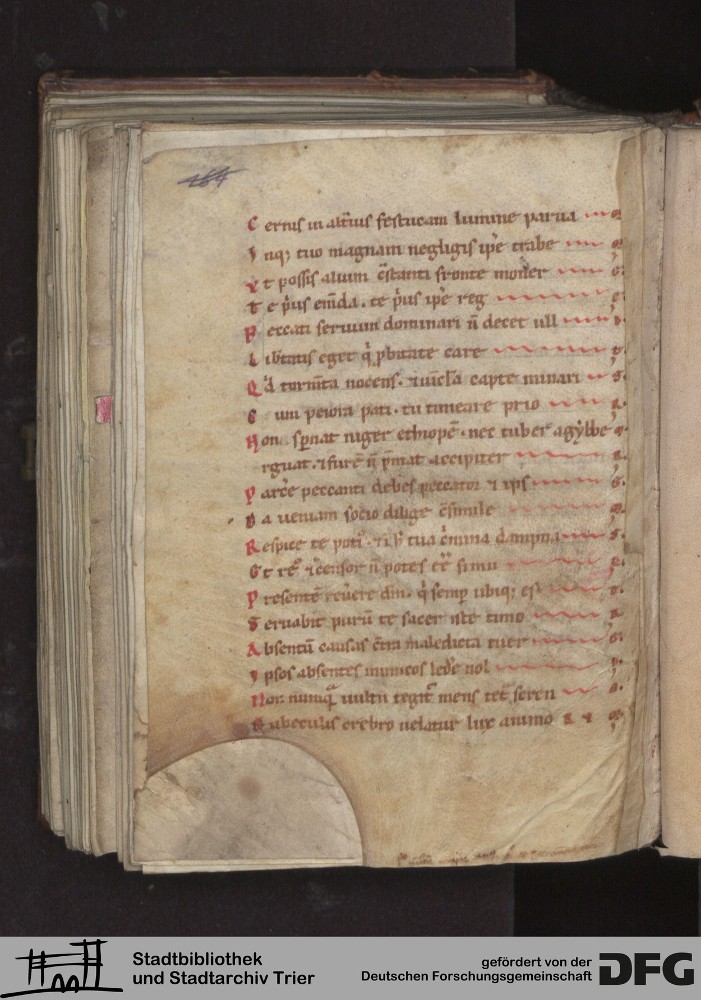 164
C ernis in alt̄ius festucam lumine parua m
I nq; tuo magnam negligis ip̄e trabe m
V t possis alium c̄stanti fronte moner e
T e p̄us em̄da. te p̄us ip̄e reg e
P eccati seruum dominari n̄ decet ull i
L ib̄tatis eget q̇ p̱bitate care t
Q d̄ torm̄ta nocens. & uinc̄la capte minari s
C um peiora pati. tu timeare prio r
N on sp̱nat niger ethiopē. nec tuber agylbe
rguat. & furē n̄ p̄mat accipiter
P arc̄e peccanti debes peccator & ips e
D a ueniam socio dilige c̄simile m
R espice te poti᷒. & i h̄ tua c̄mina dampna s
E t re᷒ & censor n̄ potes eē̄ simu l
P resentē reu̅ere dm̄. q̇ semp̱ ubiq; es t
S eruabit purū te sacer iste timo r
A bsentū causas c̄tra maledicta tuer e
I psos absentes inimicos led̄e nol i
N on numq̄ uultu tegit̄ mens tet̄ seren o
N ubeculis crebro uelatur lux animo
Stadtbibliothek
und Stadtarchiv Trier
gefördert von der
Deutschen Forschungsgemeinschaft
DFG